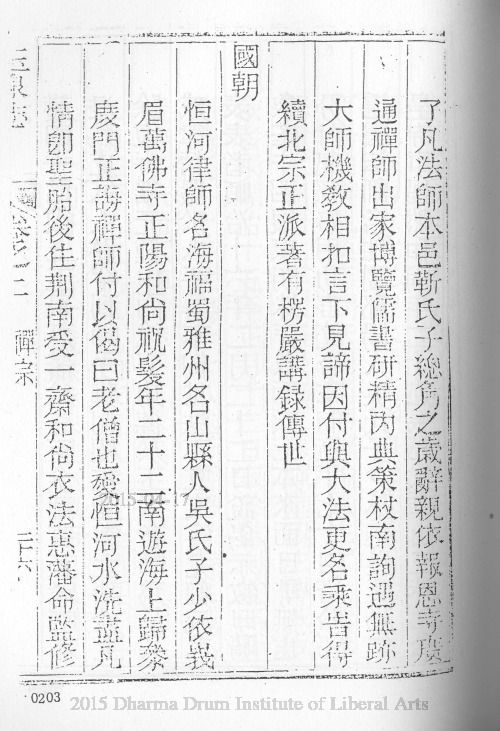 了凡法師本邑靳氏子總角之歲辭親依報恩寺慶
通禪師出家博覽儒書研精內典策杖南詢遇無跡
大師機敎相扣言下見諦因付與大法更名乘旹得
續北宗正派著有楞嚴講録傳世
國朝
恒河律師名海福蜀雅州名山縣人吳氏子少依峩
眉萬佛寺正陽和尙祝髮年二十二南遊海上歸叅
度門正誨禪師付以偈曰老僧也愛恒河水洗盡凡
情卽聖胎後住荆南受一齋和尙衣法惠藩命監修
玉泉志 卷之二 禪宗 二十六
0203
2015 Dharma Drum Institute of Liberal Arts